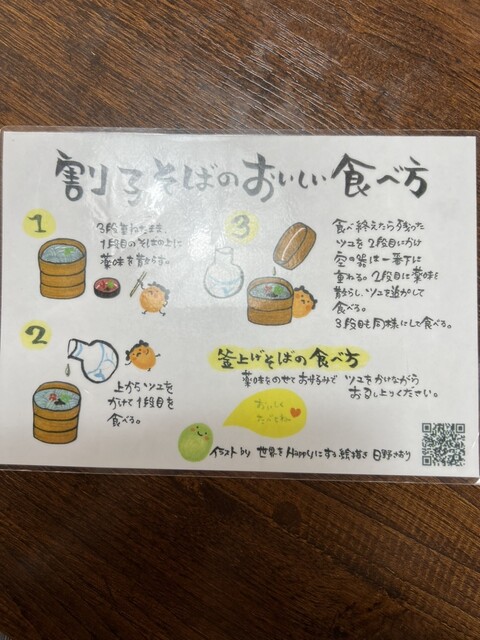 割子そばのおいしい食べ方
1
3段重ねたまま、
1段目のそばの上に
薬味を散らす。
2
上からツユを
かけて1段目を
食べる。
3
食べ終えたら残った
ツユを2段目にかけ
空の器は一番下に
重ねる。2段目に薬味を
散らし、ツユを逃がして
食べる。
3段目も同様にして食べる。
釜上げそばの食べ方
薬味をのせてお好みで ツユをかけながら
お召し上がりください。
おいしく
たべてね
イラスト by 世界をHappyにする絵描き 日野さおり